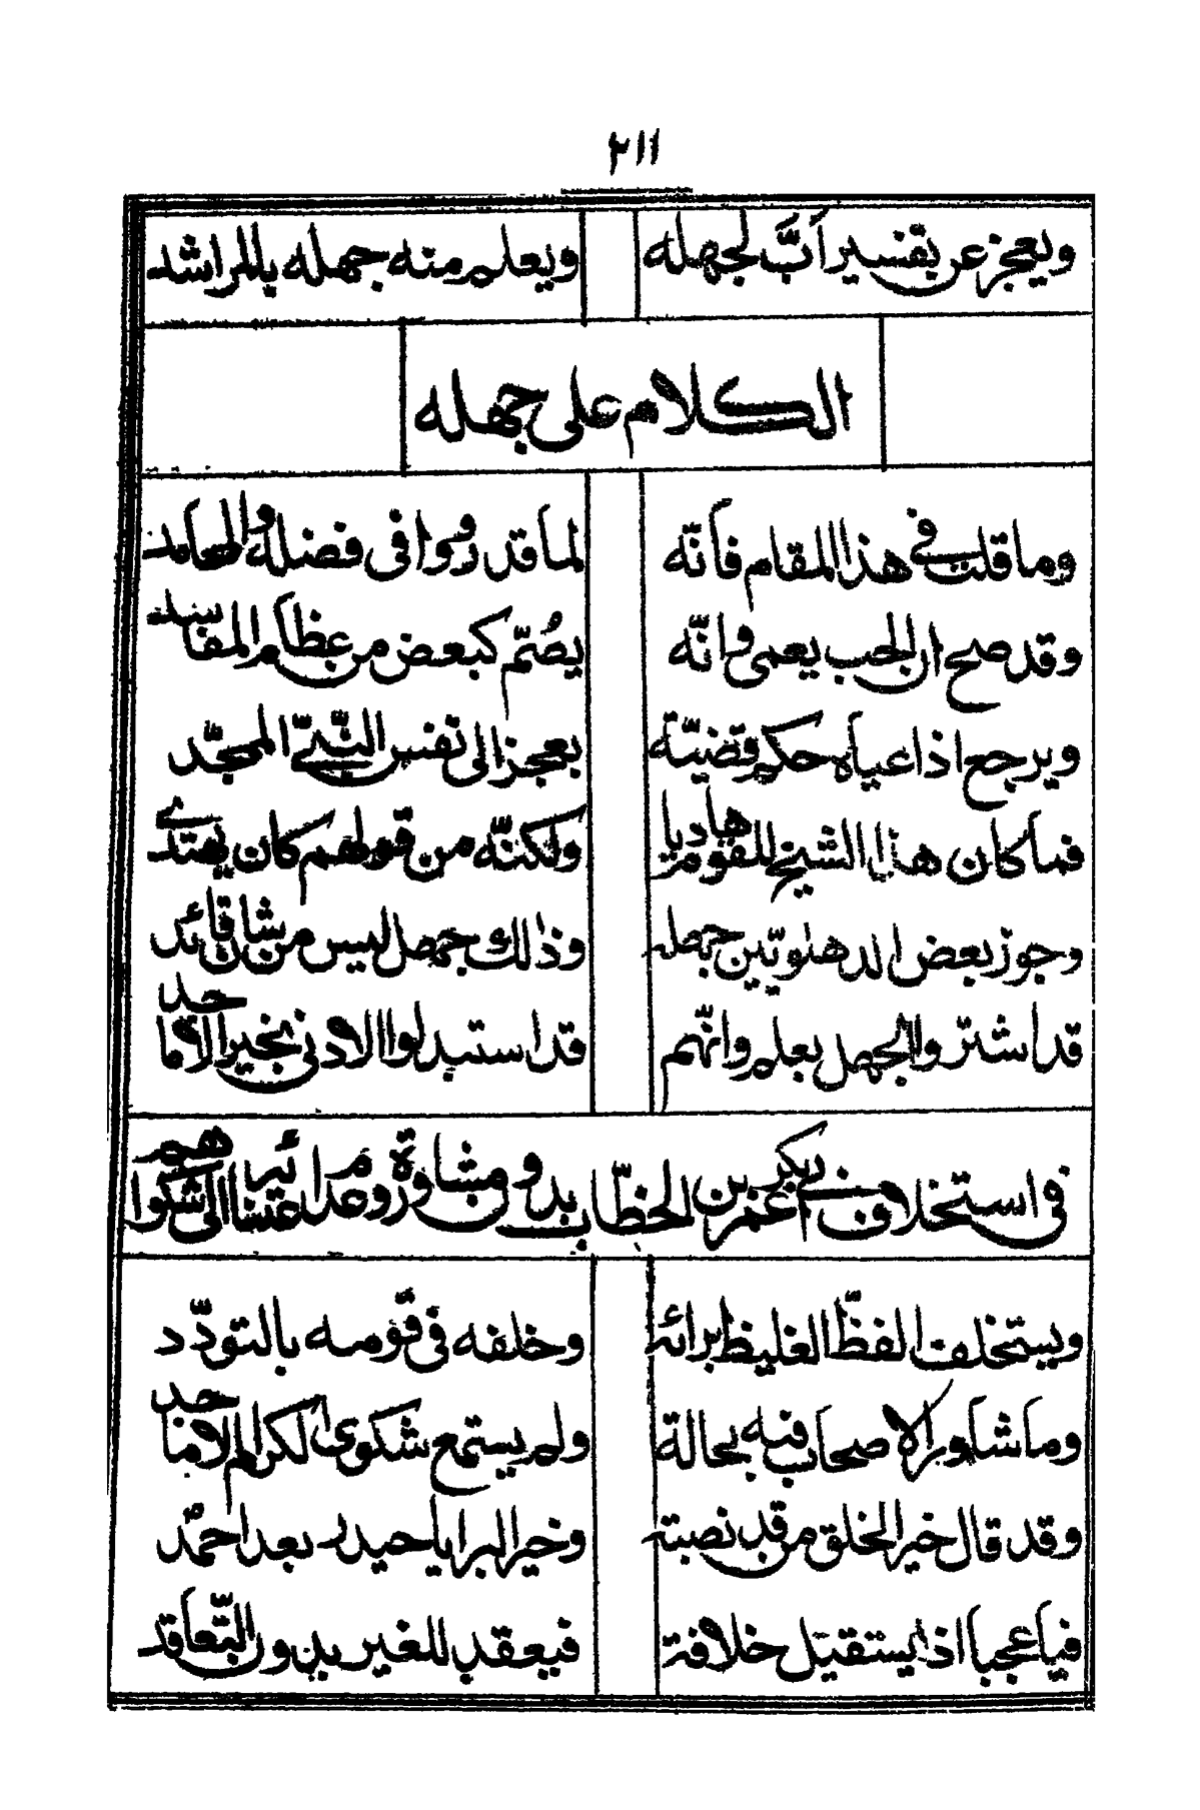 ٢١١
ويعجز عن تفسير أبّ لجهله ويعلم منه جهله بالمراشد
الكلام على جهله
وما قلت في هذا المقام فانّه لما قد رووا في فضله والمحامد
وقد صح ان الحب يعمى وانّه يصُمّ كبعض من عظام المفاسد
ويرجع اذا عياه حكم قضيّة بعجز الى نفس النّبيّ الممجّد
فما كان هذا الشيخ للقوم هاديا ولكنّه من قولهم كان يهتدى
وجوز بعض الدهلويّين جهله وذالك جهل ليس من شان قائد
قد اشتروا الجهل بعلم وانّهم قد استبدلوا الادنى بخير الاماجد
في استخلاف أبي بكر عمر بن الخطّاب بدون مشاورة وعدم اعتنائه الى شكواهم
ويستخلف الفظّ الغليظ برائه وخلفه في قومه بالتودّد
وما شاور الاصحاب فيه بحالة ولم يستمع شكوى لكرام الاماجد
وقد قال خير الخلق من قد نصبته وخير البرايا حيدر بعد احمد
فيا عجبا اذ يستقيل خلافة فيعقد للغير بدون التّعاقد